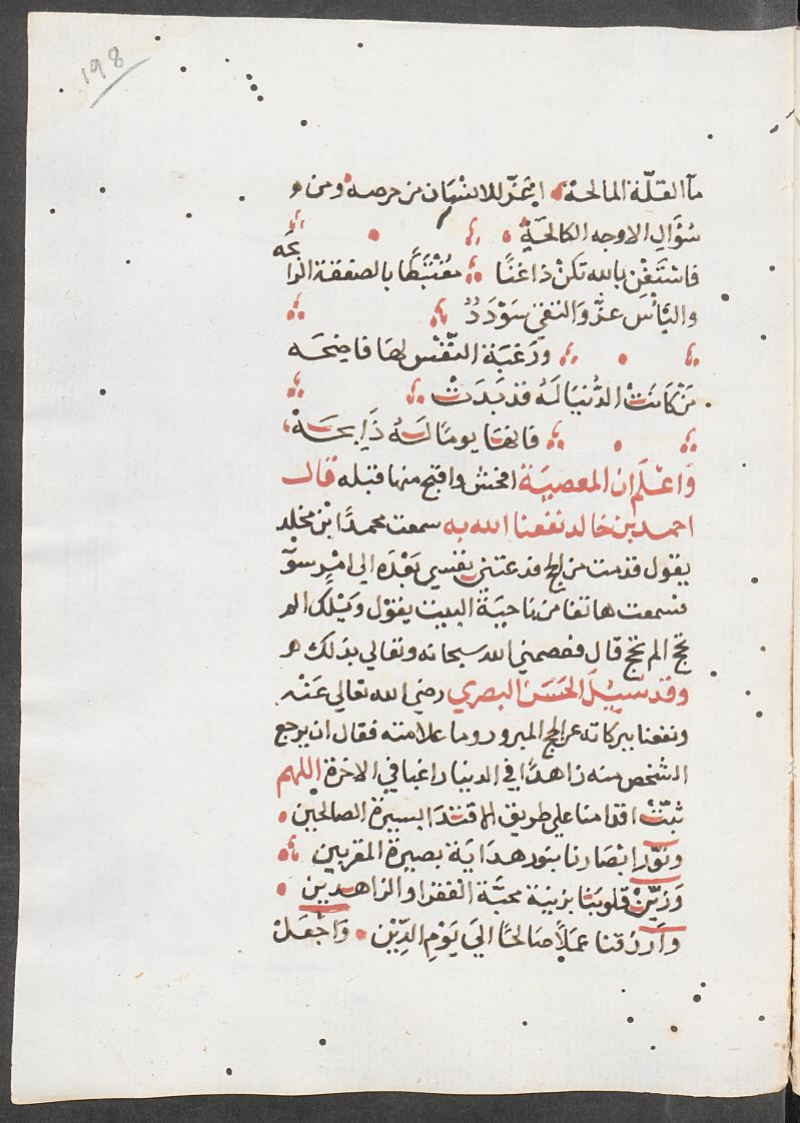 198
مآ القلّة المالحة • اعزّ للانسان من حرصه • ومن
سُؤَالِ الاوجه الكالحَةِ
فاسْتَغْنِ بالله تكنْ ذاغنًا مغْتَبَطًا بالصفقة الرابحَه
واليَأْسَ عزٌّ وَالتقي سَوْدَدٌ
وَرَغبَة النّفس لهَا فاضِحَه
مَنْ كَانَتْ الدُّنيَا لَهُ قد بَدَتْ
فانهَا يومًا لهُ ذَابِحَة
وَاعْلَم ان المعصيَة افحش واقبح منها قبله قال
احمد بن خالد نفعنا الله به سمعت محمدًا ابن مخلد
يقول قدمت من الحج فدعتني نفسي بَعْدَه الي امْرِ سوّ
فسمعت هاتفا من ناحيَة البيت يقول وَيْلك الم
تحج الم تحج قال فعصمني الله سبحانه وتعالي بذلك
وقد سُيِلَ الحَسَن البصري رضي الله تعالي عَنْه
ونفعنا ببركاته عن الحج المبرور وما علامته فقال ان يرجع
الشخص منه زاهدًا في الدنيا راغبا في الاخرة اللهم
ثبّتْ اقدامنا علي طريق الاقتدَا بسيرة الصالحين •
ونَوّر ابْصَارنا بنور هدَايَة بصيرة المقربين
وَزَيّنْ قلوبَنَا بزينة محبَّة الفقرا والزاهدين •
وارْزقنا عَمَلًا صَالحًا اليَ يَوْمِ الدِّيْن • وَاجْعَلْ